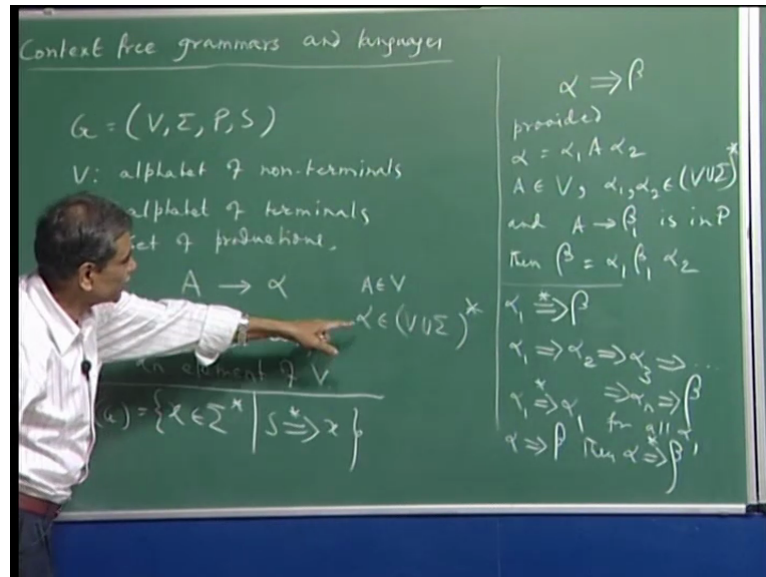 Context free grammars and languages
G = (V, Σ, P, S)
V: alphabet of non-terminals
alphabet of terminals
set of productions.
A → α A ∈ V
α ∈ (V ∪ Σ)*
an element of V
(G) = { x ∈ Σ* | S ⇒* x }
α ⇒ β
provided
α = α₁ A α₂
A ∈ V, α₁, α₂ ∈ (V ∪ Σ)*
and A → β₁ is in P
Then β = α₁ β₁ α₂
α₁ ⇒* β
α₁ ⇒ α₂ ⇒ α₃ ⇒ ...
⇒ αₙ ⇒ β
α₁ ⇒* α₁ for all α
α ⇒ β Then α ⇒* β